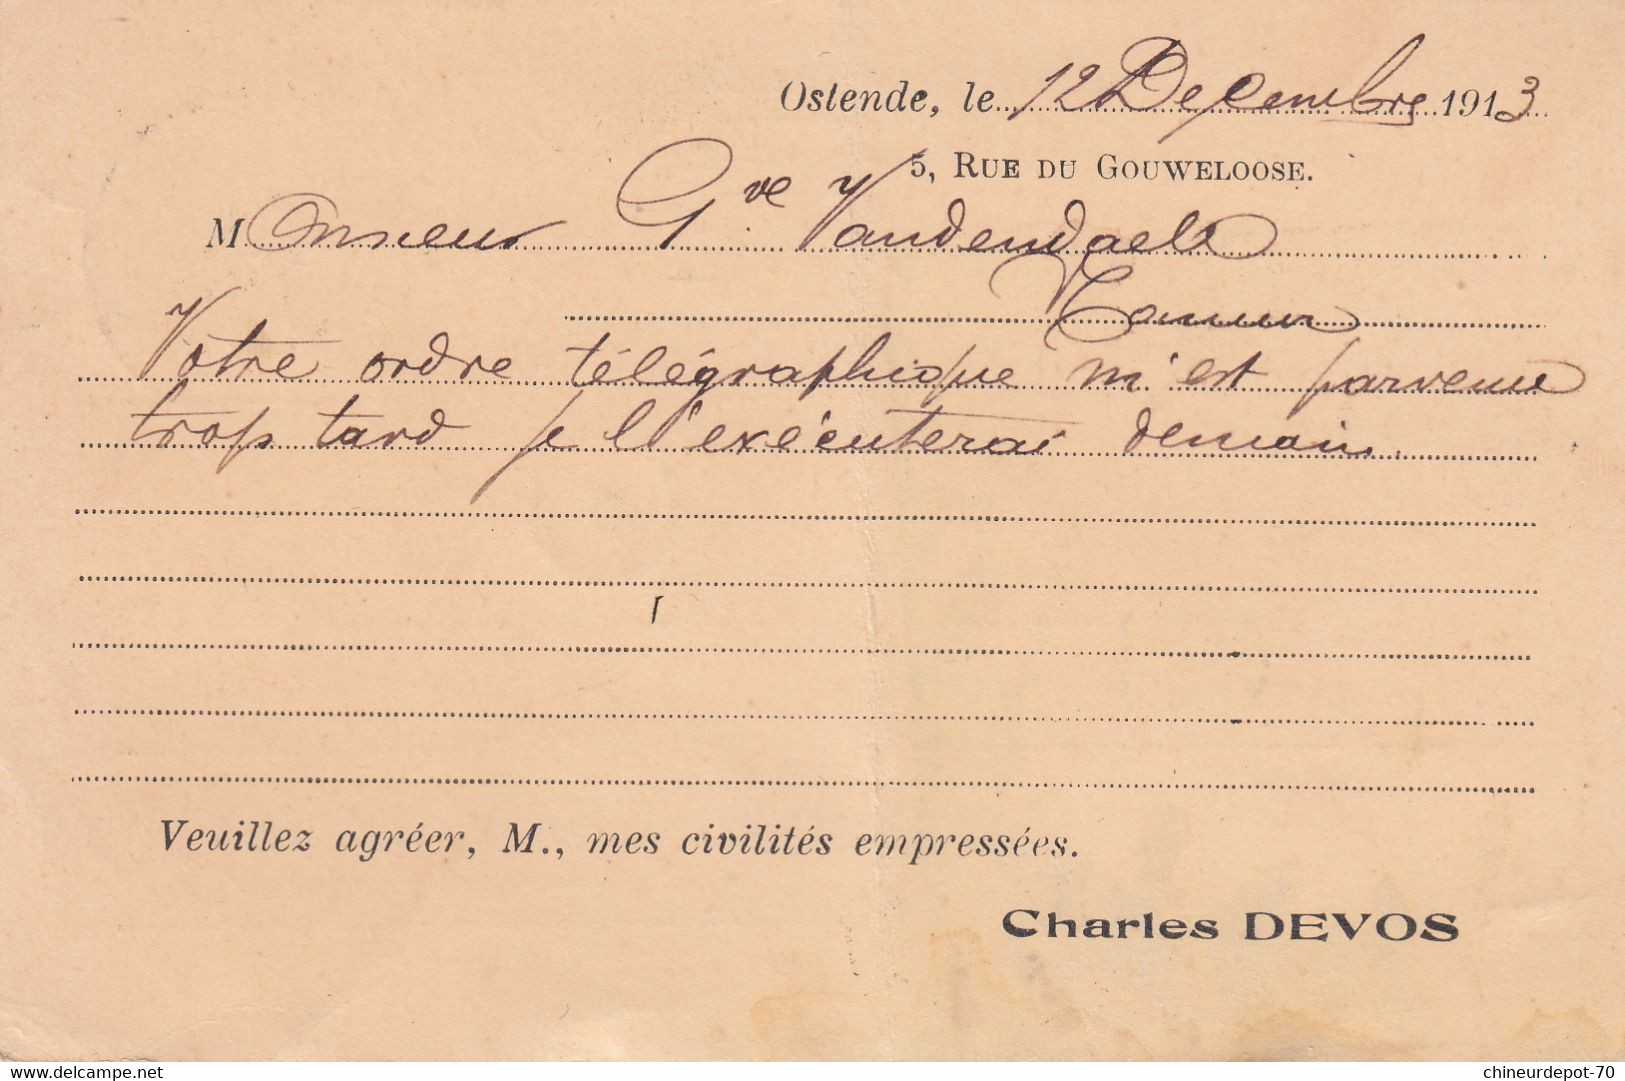 Ostende, le 12 Decembre 1913
5, RUE DU GOUWELOOSE.
Monsieur Gve Vandendaele
Votre ordre télégraphique m'est parvenu
trop tard je l'exécuterai demain.
Veuillez agréer, M., mes civilités empressées.
Charles DEVOS
delcampe.net
chineurdepot-70